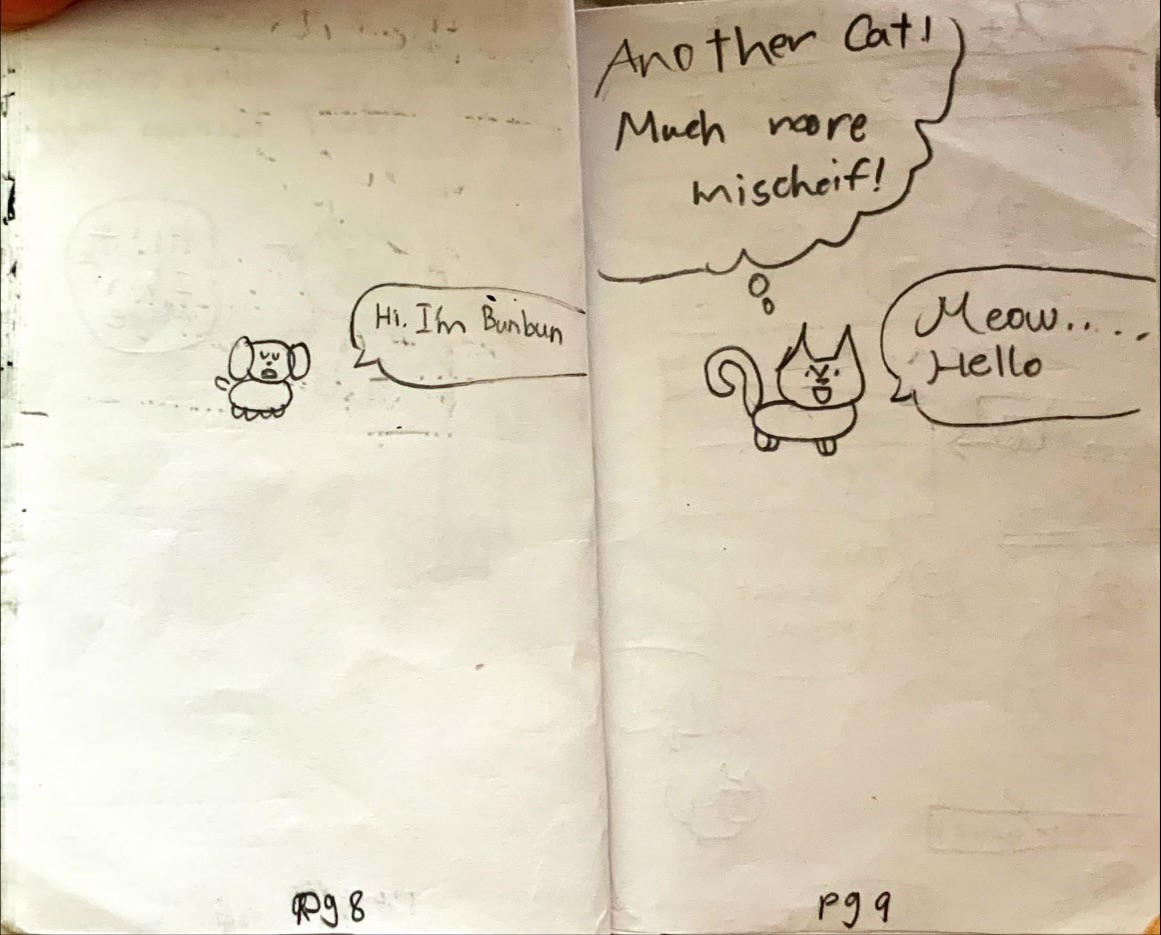 Hi. I'm Bunbun
Pg 8
Another Cat!
Much more
mischeif!
Meow.....
Hello
pg 9